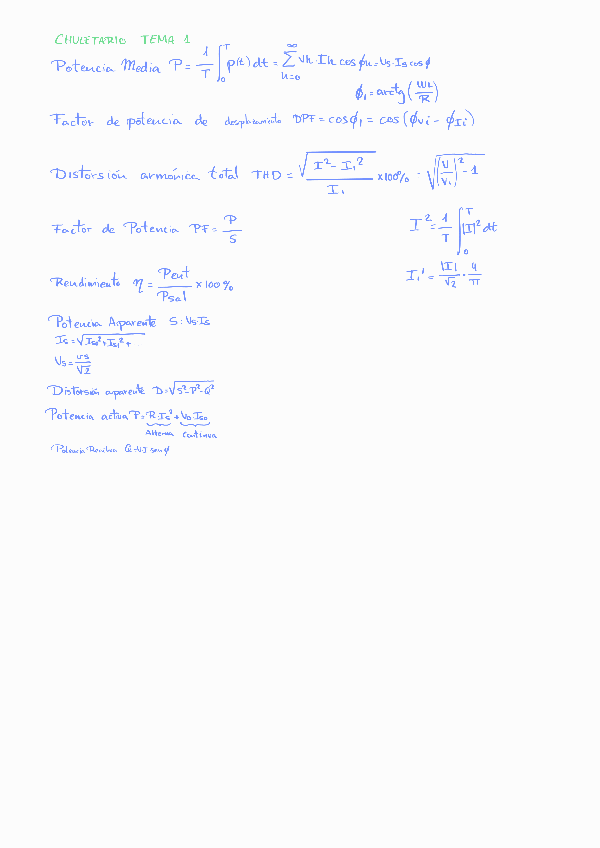 CHULETARIO TEMA 1
Potencia Media P = 1/T ∫₀ᵀ p(t) dt = ∑_{h=0}^{∞} Vh · Ih cos ϕh = Vs · Is cos ϕ
ϕ₁ = arctg (WL/R)
Factor de potencia de desplazamiento DPF = cos ϕ₁ = cos (ϕvi − ϕIi)
Distorsión armónica total THD = √(I² − I₁²) / I₁ × 100% - √((V/V₁)² − 1)
Factor de Potencia PF = P/S
I² = 1/T ∫₀ᵀ |I|² dt
Rendimiento η = Pent/Psal × 100 %
I₁' = |I|/√2 · 4/π
Potencia Aparente S = Vs · Is
Is = √(Is0² + Is1² +
Vs = vs/√2
Distorsión aparente D = √(S² − P² − Q²)
Potencia activa P = R · Is² + V0 · Is0
Alterna Continua
Potencia Reactiva Q = V·I sen ϕ